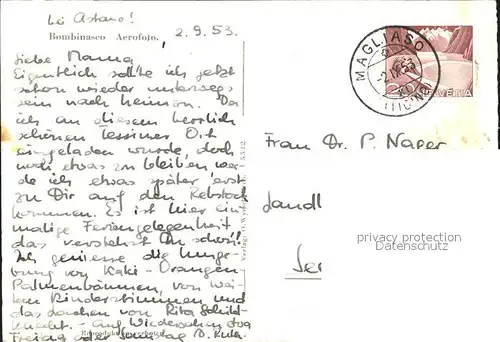 bei Astano!
2.9.53.
Bombinasco Aerofoto.
Liebe Mama,
Eigentlich sollte ich jetzt
schon wieder unterwegs
sein nach heimen. Da
ich an diesem herrlich
schönen Tessiner Ort
eingeladen wurde, doch
noch etwas zu bleiben wer-
de ich etwas später erst
zu Dir auf den Rebstock
kommen. Es ist hier ein-
malige Feriengelegenheit
das verstehst Du schon!
Ich geniesse die Umge-
bung von Kaki- Orangen
Palmenbäumen, von
Kinderstimmen und
das Lachen von Rita Schild-
knecht. - Auf Wiedersehen
Freitag oder Samstag
MAGLIASO
-2.IX.53
HELVETIA
Frau Dr. P. Naper
Landl
privacy protection
Datenschutz